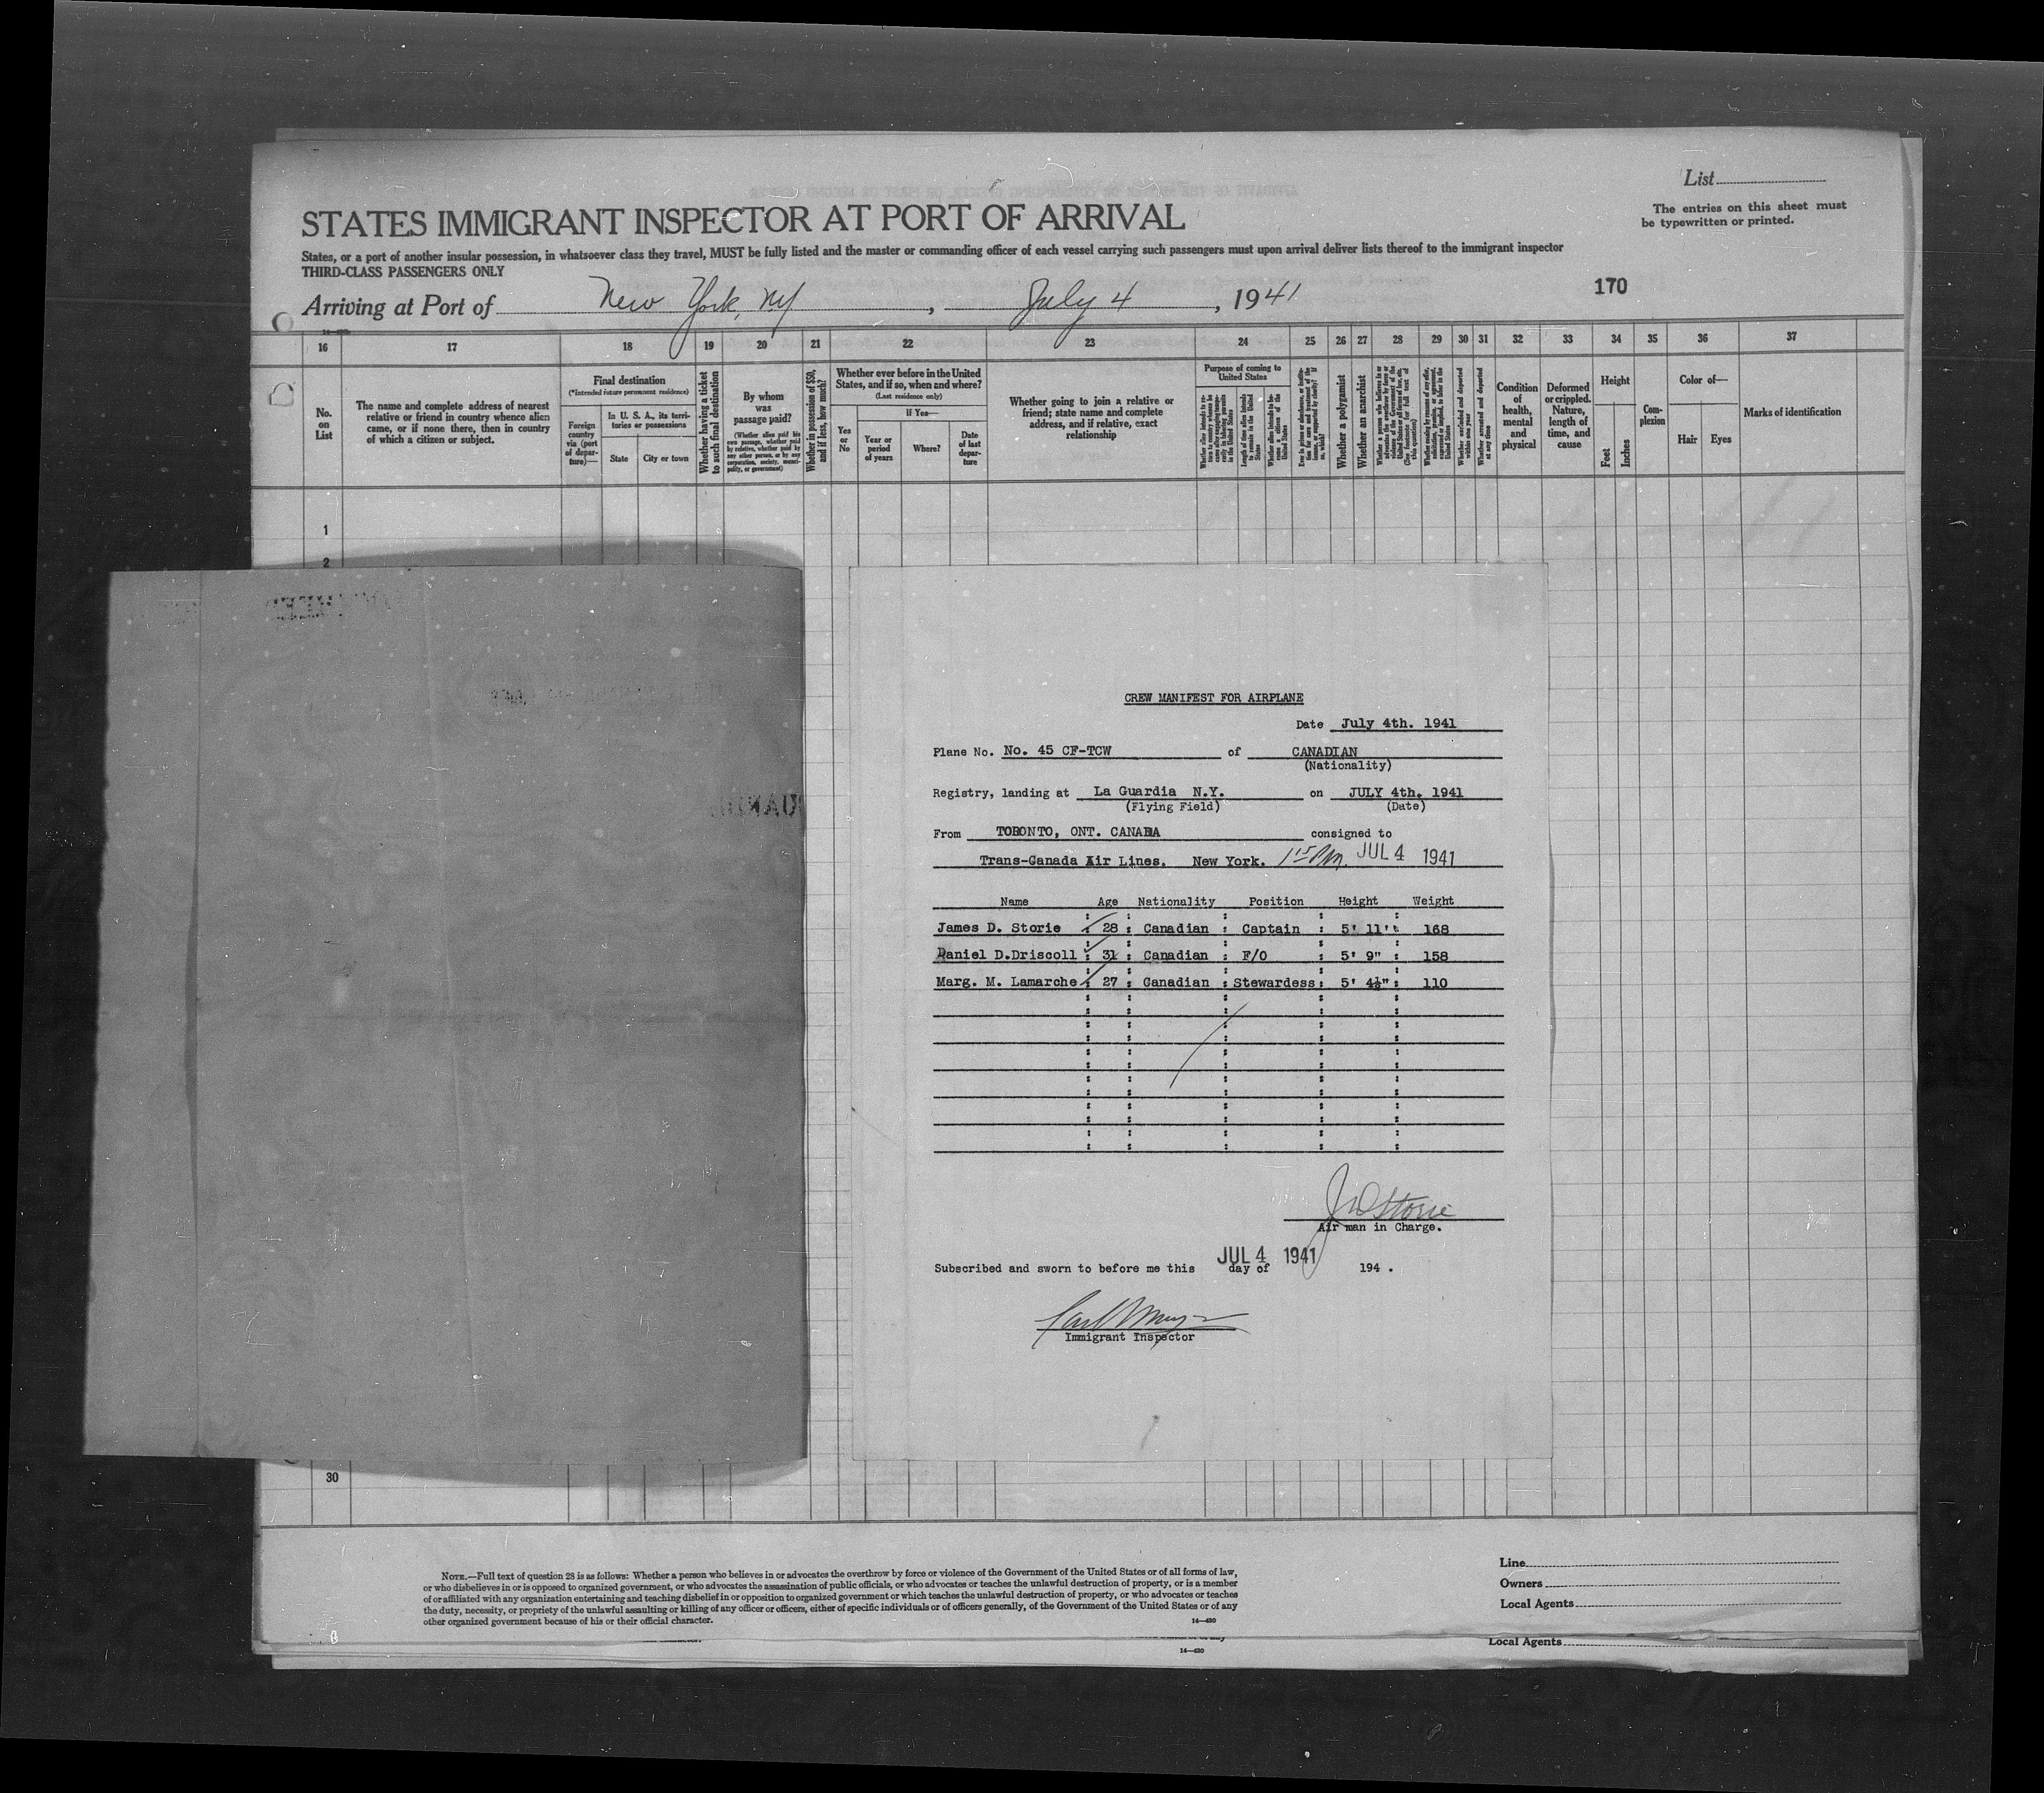 List
The entries on this sheet must
be typewritten or printed.
STATES IMMIGRANT INSPECTOR AT PORT OF ARRIVAL
States, or a port of another insular possession, in whatsoever class they travel, MUST be fully listed and the master or commanding officer of each vessel carrying such passengers must upon arrival deliver lists thereof to the immigrant inspector
THIRD-CLASS PASSENGERS ONLY
170
Arriving at Port of New York, NY, July 4, 1941
16 17 18 19 20 21 22 23 24 25 26 27 28 29 30 31 32 33 34 35 36 37
No. on List
The name and complete address of nearest
relative or friend in country whence alien
came, or if none there, then in country
of which a citizen or subject.
Final destination
(*Intended future permanent residence)
Foreign
country
via (port
of depar-
ture)—
In U. S. A., its terri-
tories or possessions
State City or town
Whether having a ticket
to such final destination
By whom
was
passage paid?
(Whether alien paid his
own passage, whether paid
by relative, whether paid by
any other person, or by any
corporation, society, munici-
pality, or government)
Whether in possession of $50,
and if less, how much?
Whether ever before in the United
States, and if so, when and where?
(Last residence only)
If Yes—
Yes
or
No
Year or
period
of years
Where?
Date
of last
depar-
ture
Whether going to join a relative or
friend; state name and complete
address, and if relative, exact
relationship
Purpose of coming to
United States
Whether a polygamist
Whether an anarchist
Whether excluded and deported
within one year
Whether arrested and deported
at any time
Condition
of
health,
mental
and
physical
Deformed
or crippled.
Nature,
length of
time, and
cause
Height
Feet Inches
Com-
plexion
Color of—
Hair Eyes
Marks of identification
1
2
CREW MANIFEST FOR AIRPLANE
Date July 4th. 1941
Plane No. No. 45 CF-TCW of CANADIAN
(Nationality)
Registry, landing at La Guardia N.Y. on JULY 4th. 1941
(Flying Field) (Date)
From TORONTO, ONT. CANADA consigned to
Trans-Canada Air Lines. New York. 1 15 PM. JUL 4 1941
Name Age Nationality Position Height Weight
James D. Storie 28 Canadian Captain 5' 11" 168
Daniel D.Driscoll 31 Canadian F/O 5' 9" 158
Marg. M. Lamarche 27 Canadian Stewardess 5' 4½" 110
J D Storie
Air man in Charge.
JUL 4 1941
Subscribed and sworn to before me this day of 194 .
Immigrant Inspector
30
NOTE.—Full text of question 28 is as follows: Whether a person who believes in or advocates the overthrow by force or violence of the Government of the United States or of all forms of law,
or who disbelieves in or is opposed to organized government, or who advocates the assassination of public officials, or who advocates or teaches the unlawful destruction of property, or is a member
of or affiliated with any organization entertaining and teaching disbelief in or opposition to organized government or which teaches the unlawful destruction of property, or who advocates or teaches
the duty, necessity, or propriety of the unlawful assaulting or killing of any officer or officers, either of specific individuals or of officers generally, of the Government of the United States or of any
other organized government because of his or their official character.
14—430
Line
Owners
Local Agents
14—430
Local Agents